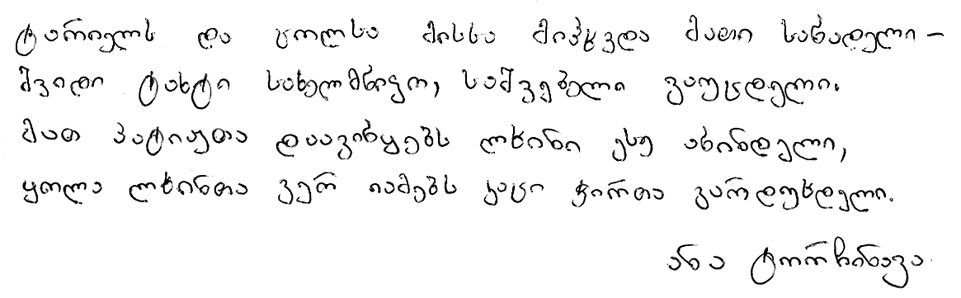 ტარიელს და ცოლსა მისსა მიჰხვდა მათი საწადელი –
შვიდი ტახტი სახელმწიფო, საშვებელი გაუცდელი.
მათ პატიჟთა დაავიწყებს ლხინი ესე აწინდელი,
ყოლა ლხინთა ვერ იამებს კაცი ჭირთა გარდუხდელი.
ანა ტორჩინავა